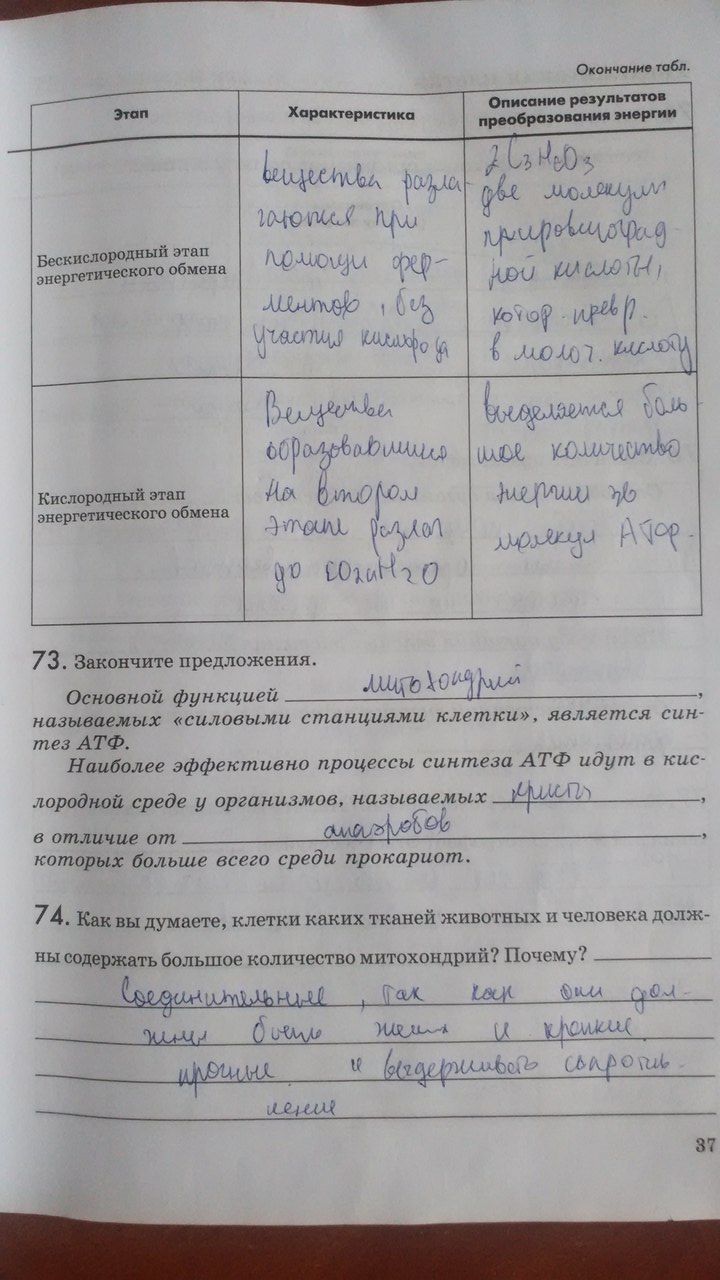 Окончание табл.
Этап
Характеристика
Описание результатов
преобразования энергии
Бескислородный этап
энергетического обмена
вещества разла-
гаются при
помощи фер-
ментов, без
участия кислорода
2C3H6O3
две молекулы
пировиноград-
ной кислоты,
котор. превр.
в молоч. кислоту
Кислородный этап
энергетического обмена
Вещества
образовавшиеся
на втором
этапе разлаг
до CO2 и H2O
выделяется боль-
шое количество
энергии
молекул АТФ.
73. Закончите предложения.
Основной функцией митохондрий,
называемых «силовыми станциями клетки», является син-
тез АТФ.
Наиболее эффективно процессы синтеза АТФ идут в кис-
лородной среде у организмов, называемых кристы,
в отличие от анаэробов,
которых больше всего среди прокариот.
74. Как вы думаете, клетки каких тканей животных и человека долж-
ны содержать большое количество митохондрий? Почему?
Соединительные, так как они дол-
жны быть и крепкие
прочные и выдерживать сопротив-
ление
37